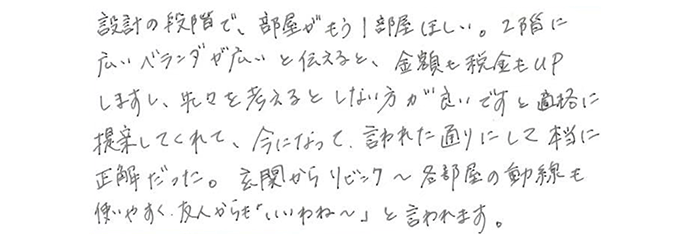 設計の段階で、部屋がもう1部屋ほしい。2階に
広いベランダが広いと伝えると、金額も税金もUP
しますし、先々を考えるとしない方が良いですと適格に
提案してくれて、今になって、言われた通りにして本当に
正解だった。玄関からリビング〜各部屋の動線も
使いやすく、友人からも「いいわね〜」と言われます。